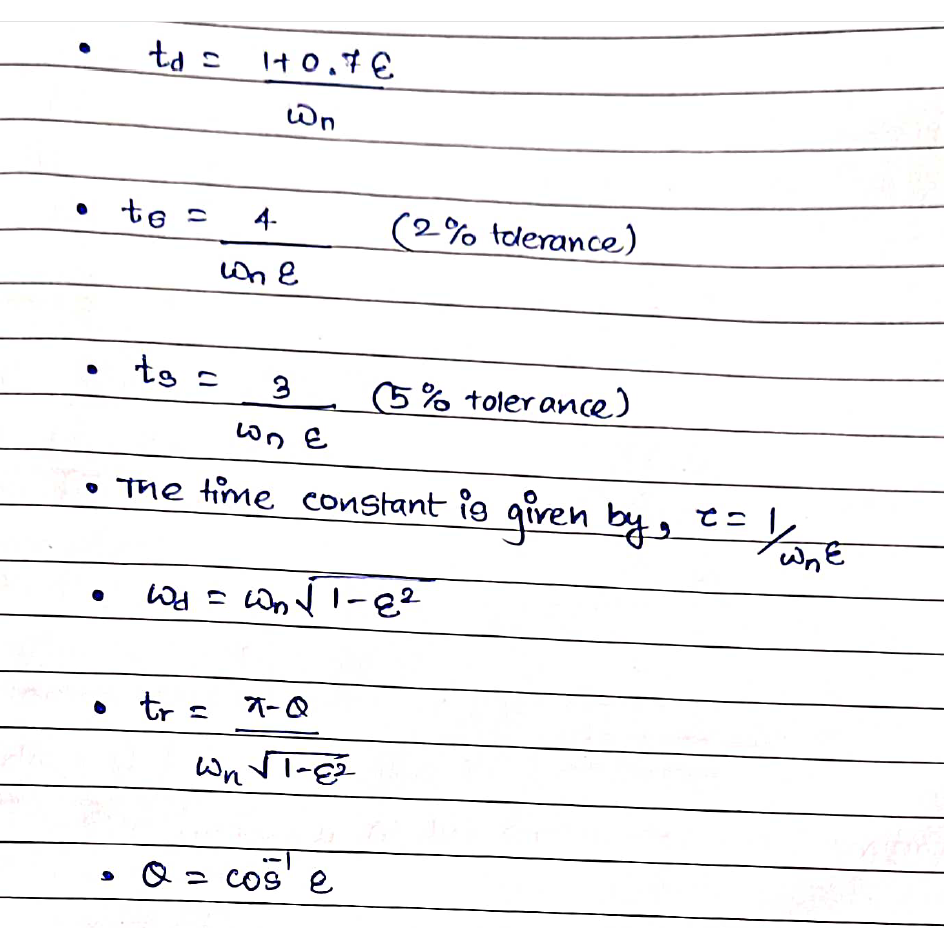 • td = 1+0.7ε
ωn
• ts = 4 (2% tolerance)
ωn ε
• ts = 3 (5% tolerance)
ωn ε
• The time constant is given by, τ = 1/ωnε
• ωd = ωn√1-ε²
• tr = π-Q
ωn √1-ε²
• Q = cos⁻¹ e